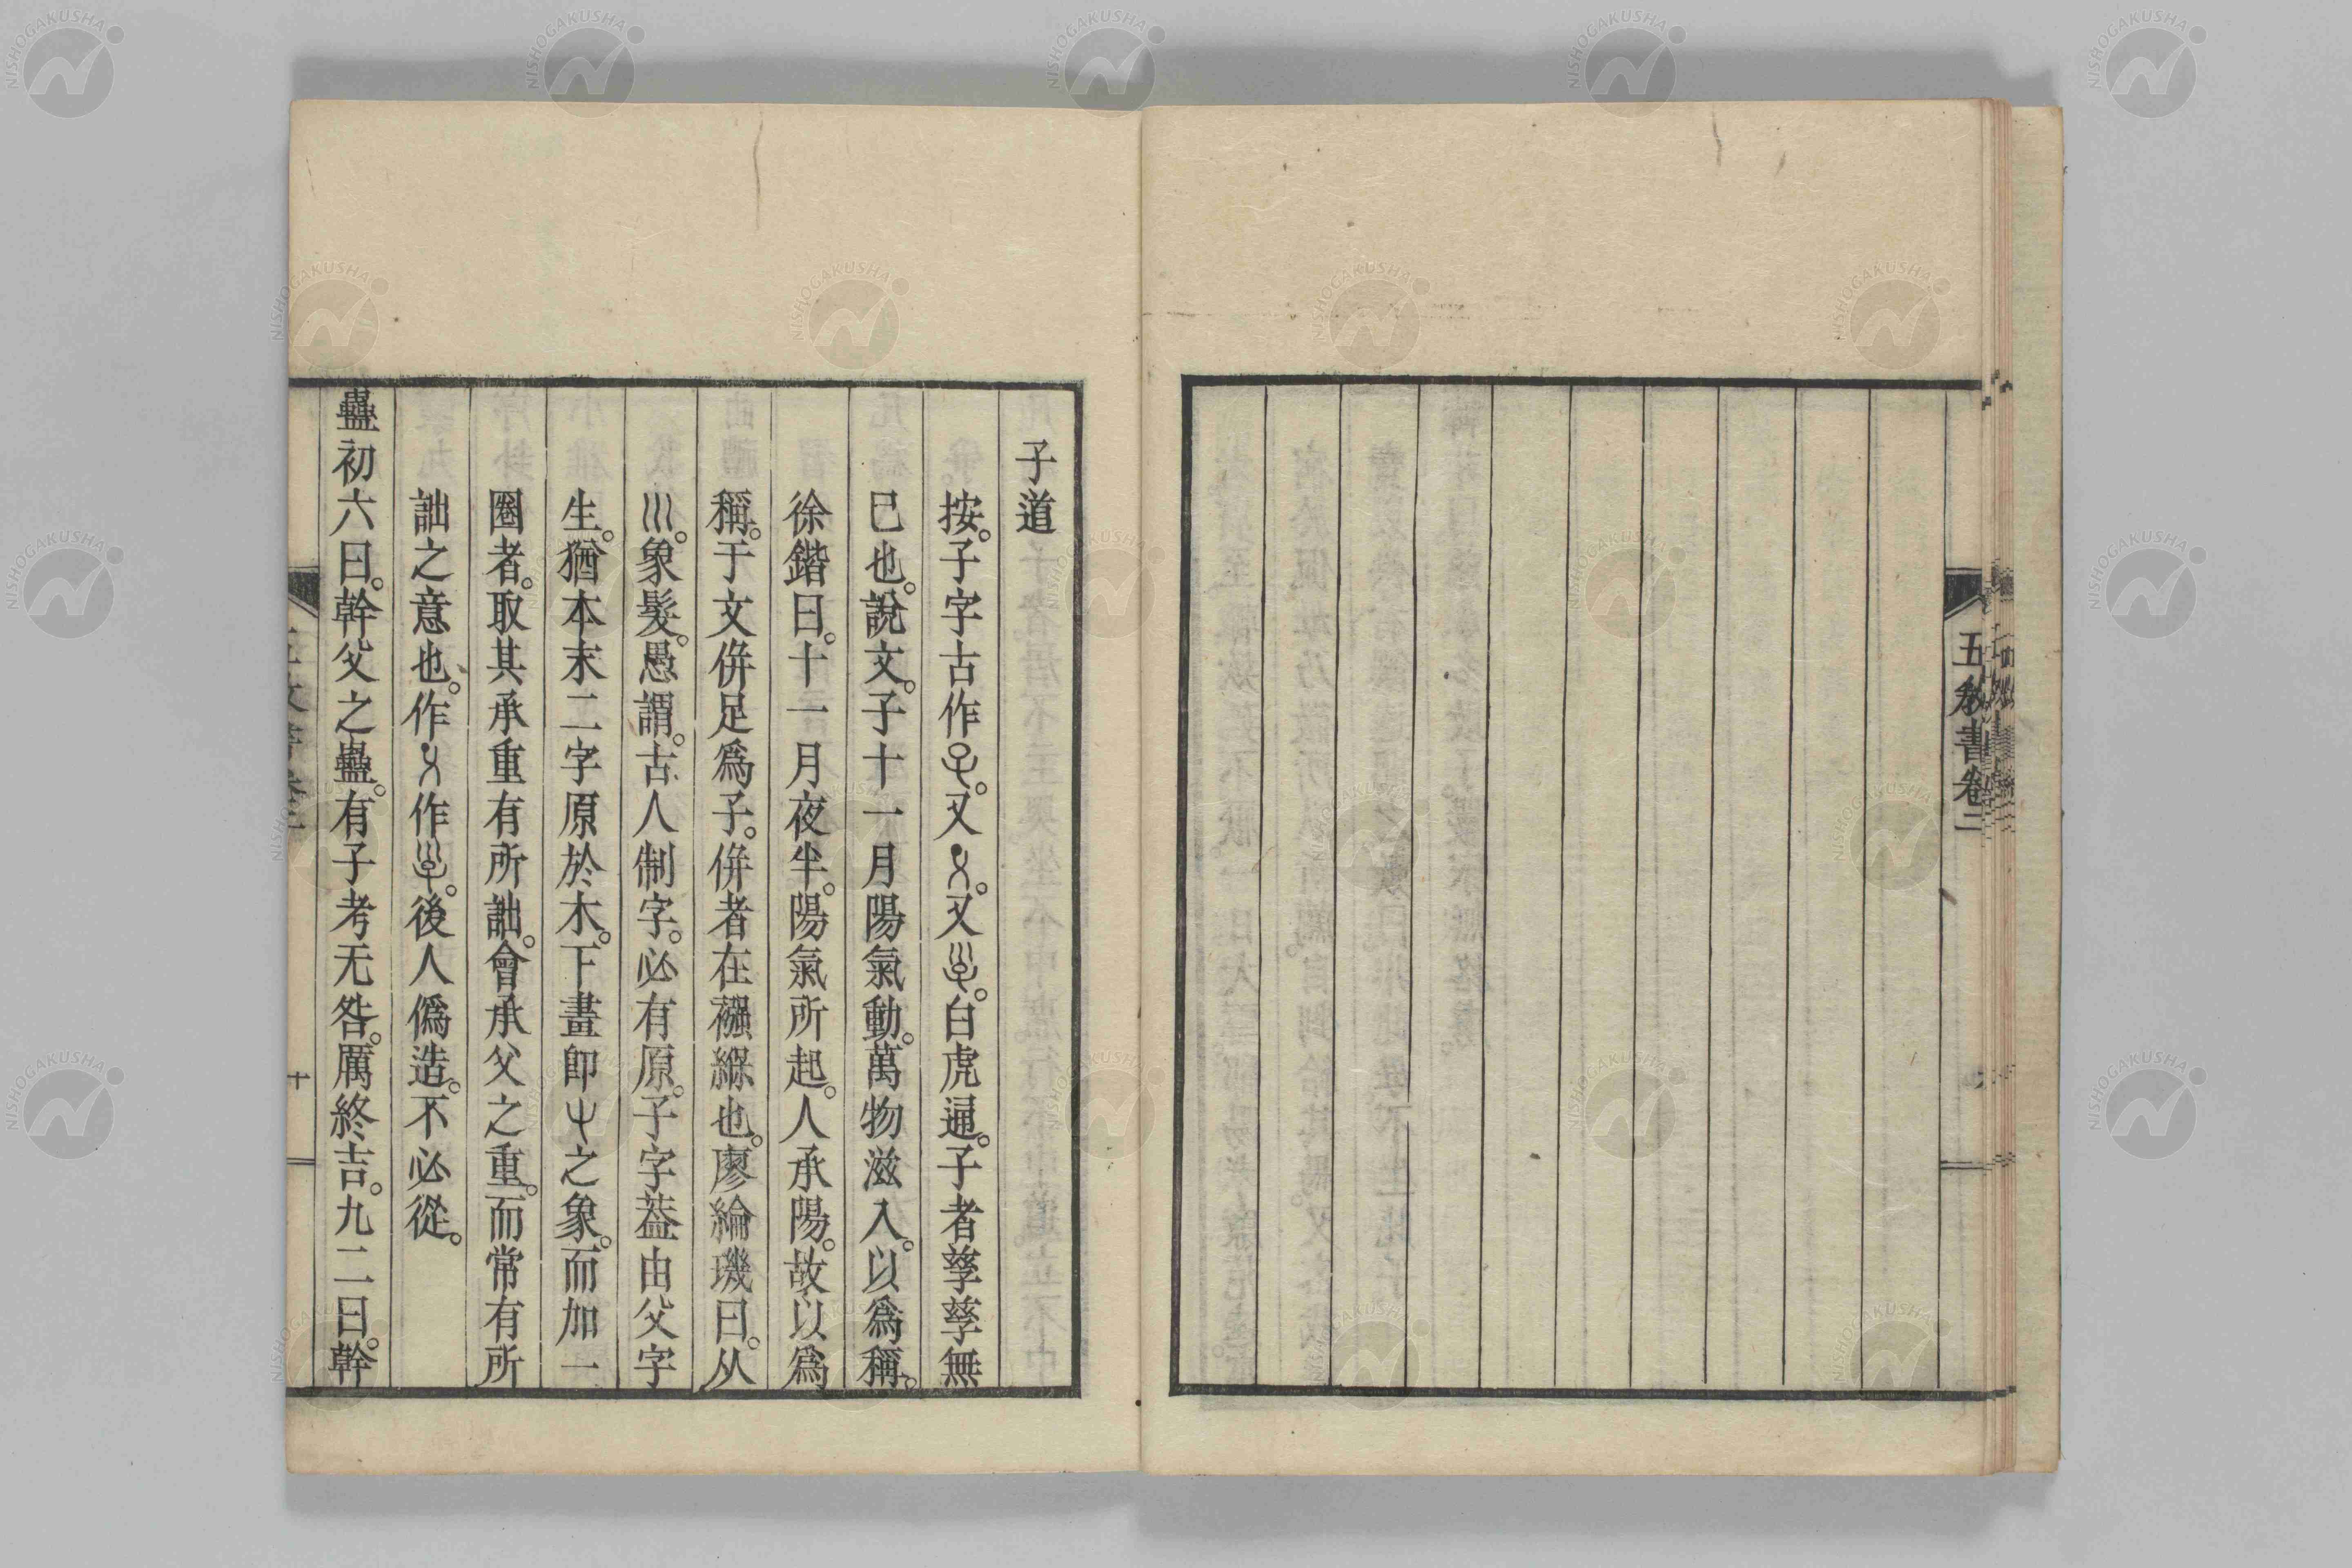 五教書卷二
子道
按。子字古作𢀇。又。又𢀈。白虎通。子者孳孳無
已也。說文。子十一月陽氣動。萬物滋入。以爲稱。
徐鍇曰。十一月夜半。陽氣所起。人承陽。故以爲
稱。于文倂足爲子。倂者在襁緥也。廖綸璣曰。从
巛。象髮。愚謂。古人制字。必有原。子字葢由父字
生。猶本末二字原於木。下畫卽屮之象。而加一
圈者。取其承重有所詘。會承父之重。而常有所
詘之意也。作作𢀈。後人僞造。不必從。
蠱初六曰。幹父之蠱。有子考无咎。厲終吉。九二曰。幹
十
NISHOGAKUSHA